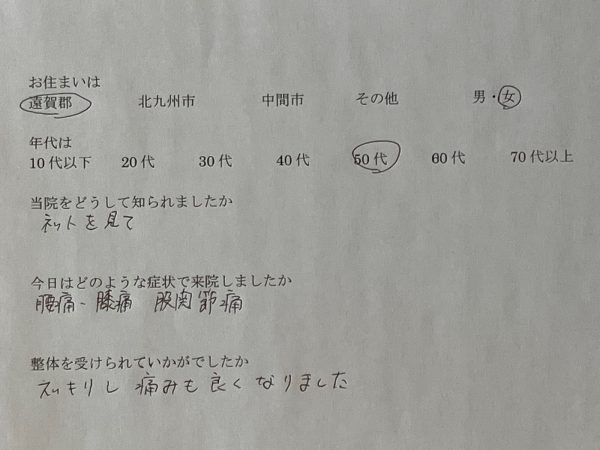 お住まいは
遠賀郡 北九州市 中間市 その他 男・女
年代は
10代以下 20代 30代 40代 50代 60代 70代以上
当院をどうして知られましたか
ネットを見て
今日はどのような症状で来院しましたか
腰痛・膝痛 股関節痛
整体を受けられていかがでしたか
スッキリし 痛みも良くなりました